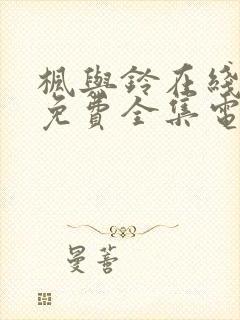 楓與鈴在綫
免費全集電
曼善